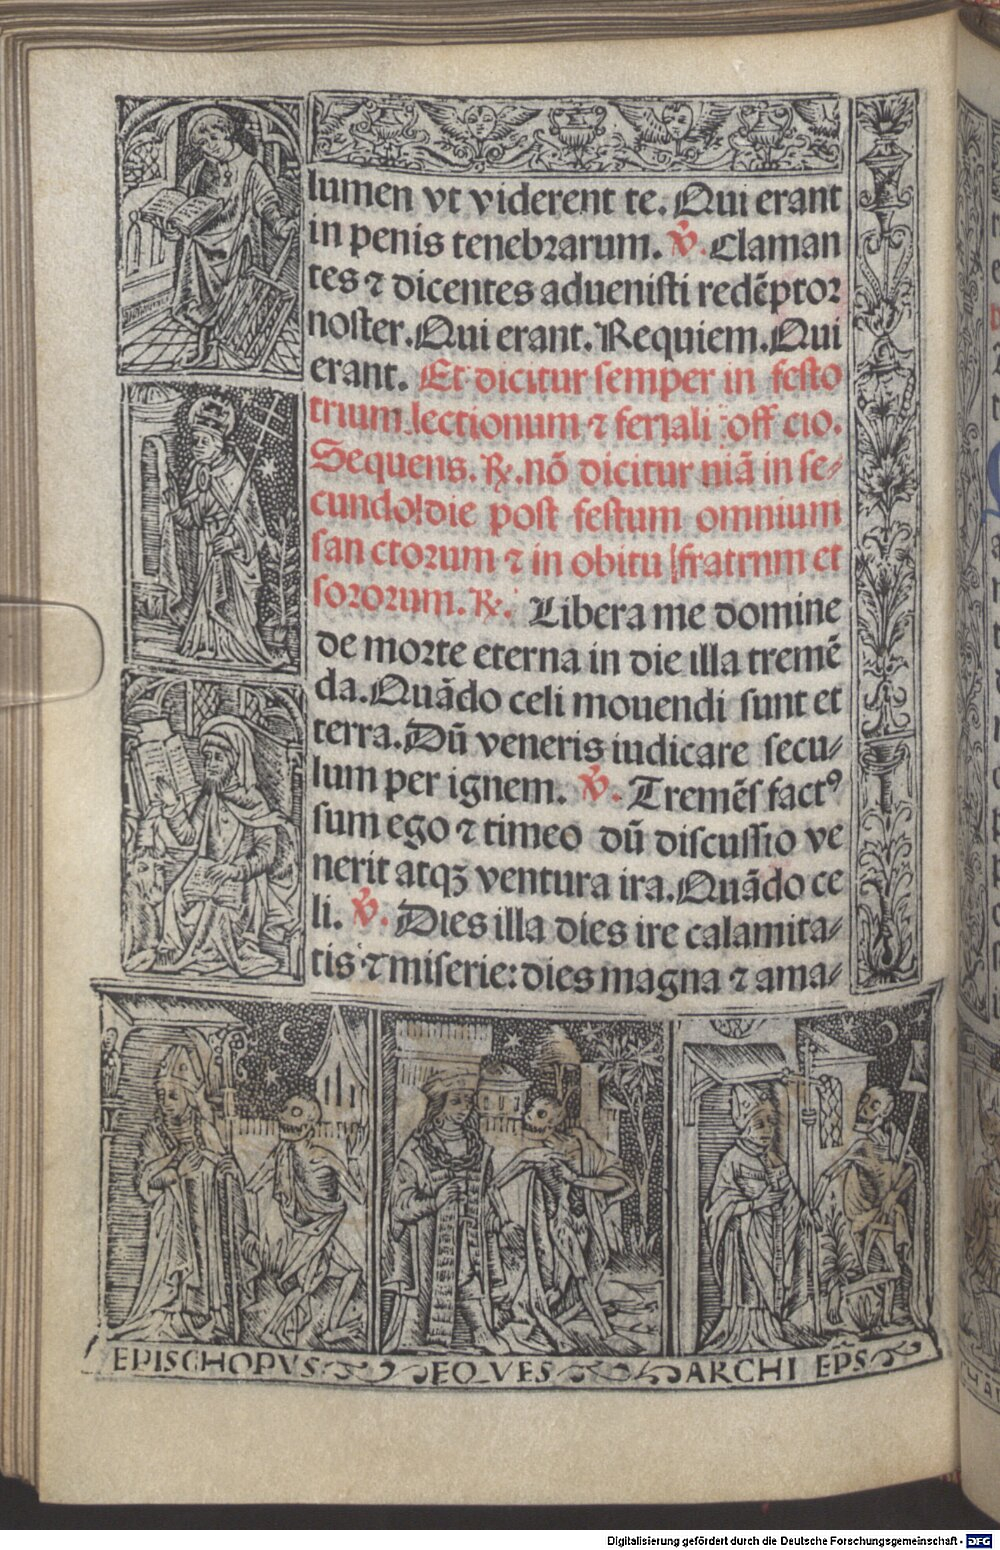 lumen vt viderent te. Qui erant
in penis tenebrarum. V̄. Claman
tes ⁊ dicentes aduenisti redēptor
noster. Qui erant. Requiem. Qui
erant. Et dicitur semper in festo
trium lectionum ⁊ feriali off cio.
Sequens. ℟. nō dicitur nisi in se⸗
cundo die post festum omnium
san ctorum ⁊ in obitu fratrum et
sororum. ℟. Libera me domine
de morte eterna in die illa tremē
da. Quādo celi mouendi sunt et
terra. Dū veneris iudicare secu⸗
lum per ignem. V̄. Tremēs factꝰ
sum ego ⁊ timeo dū discussio ve
nerit atqꝫ ventura ira. Quādo ce
li. V̄. Dies illa dies ire calamita⸗
tis ⁊ miserie: dies magna ⁊ ama⸗
EPISCHOPVS EQVES ARCHI EP̄S
Digitalisierung gefördert durch die Deutsche Forschungsgemeinschaft - DFG